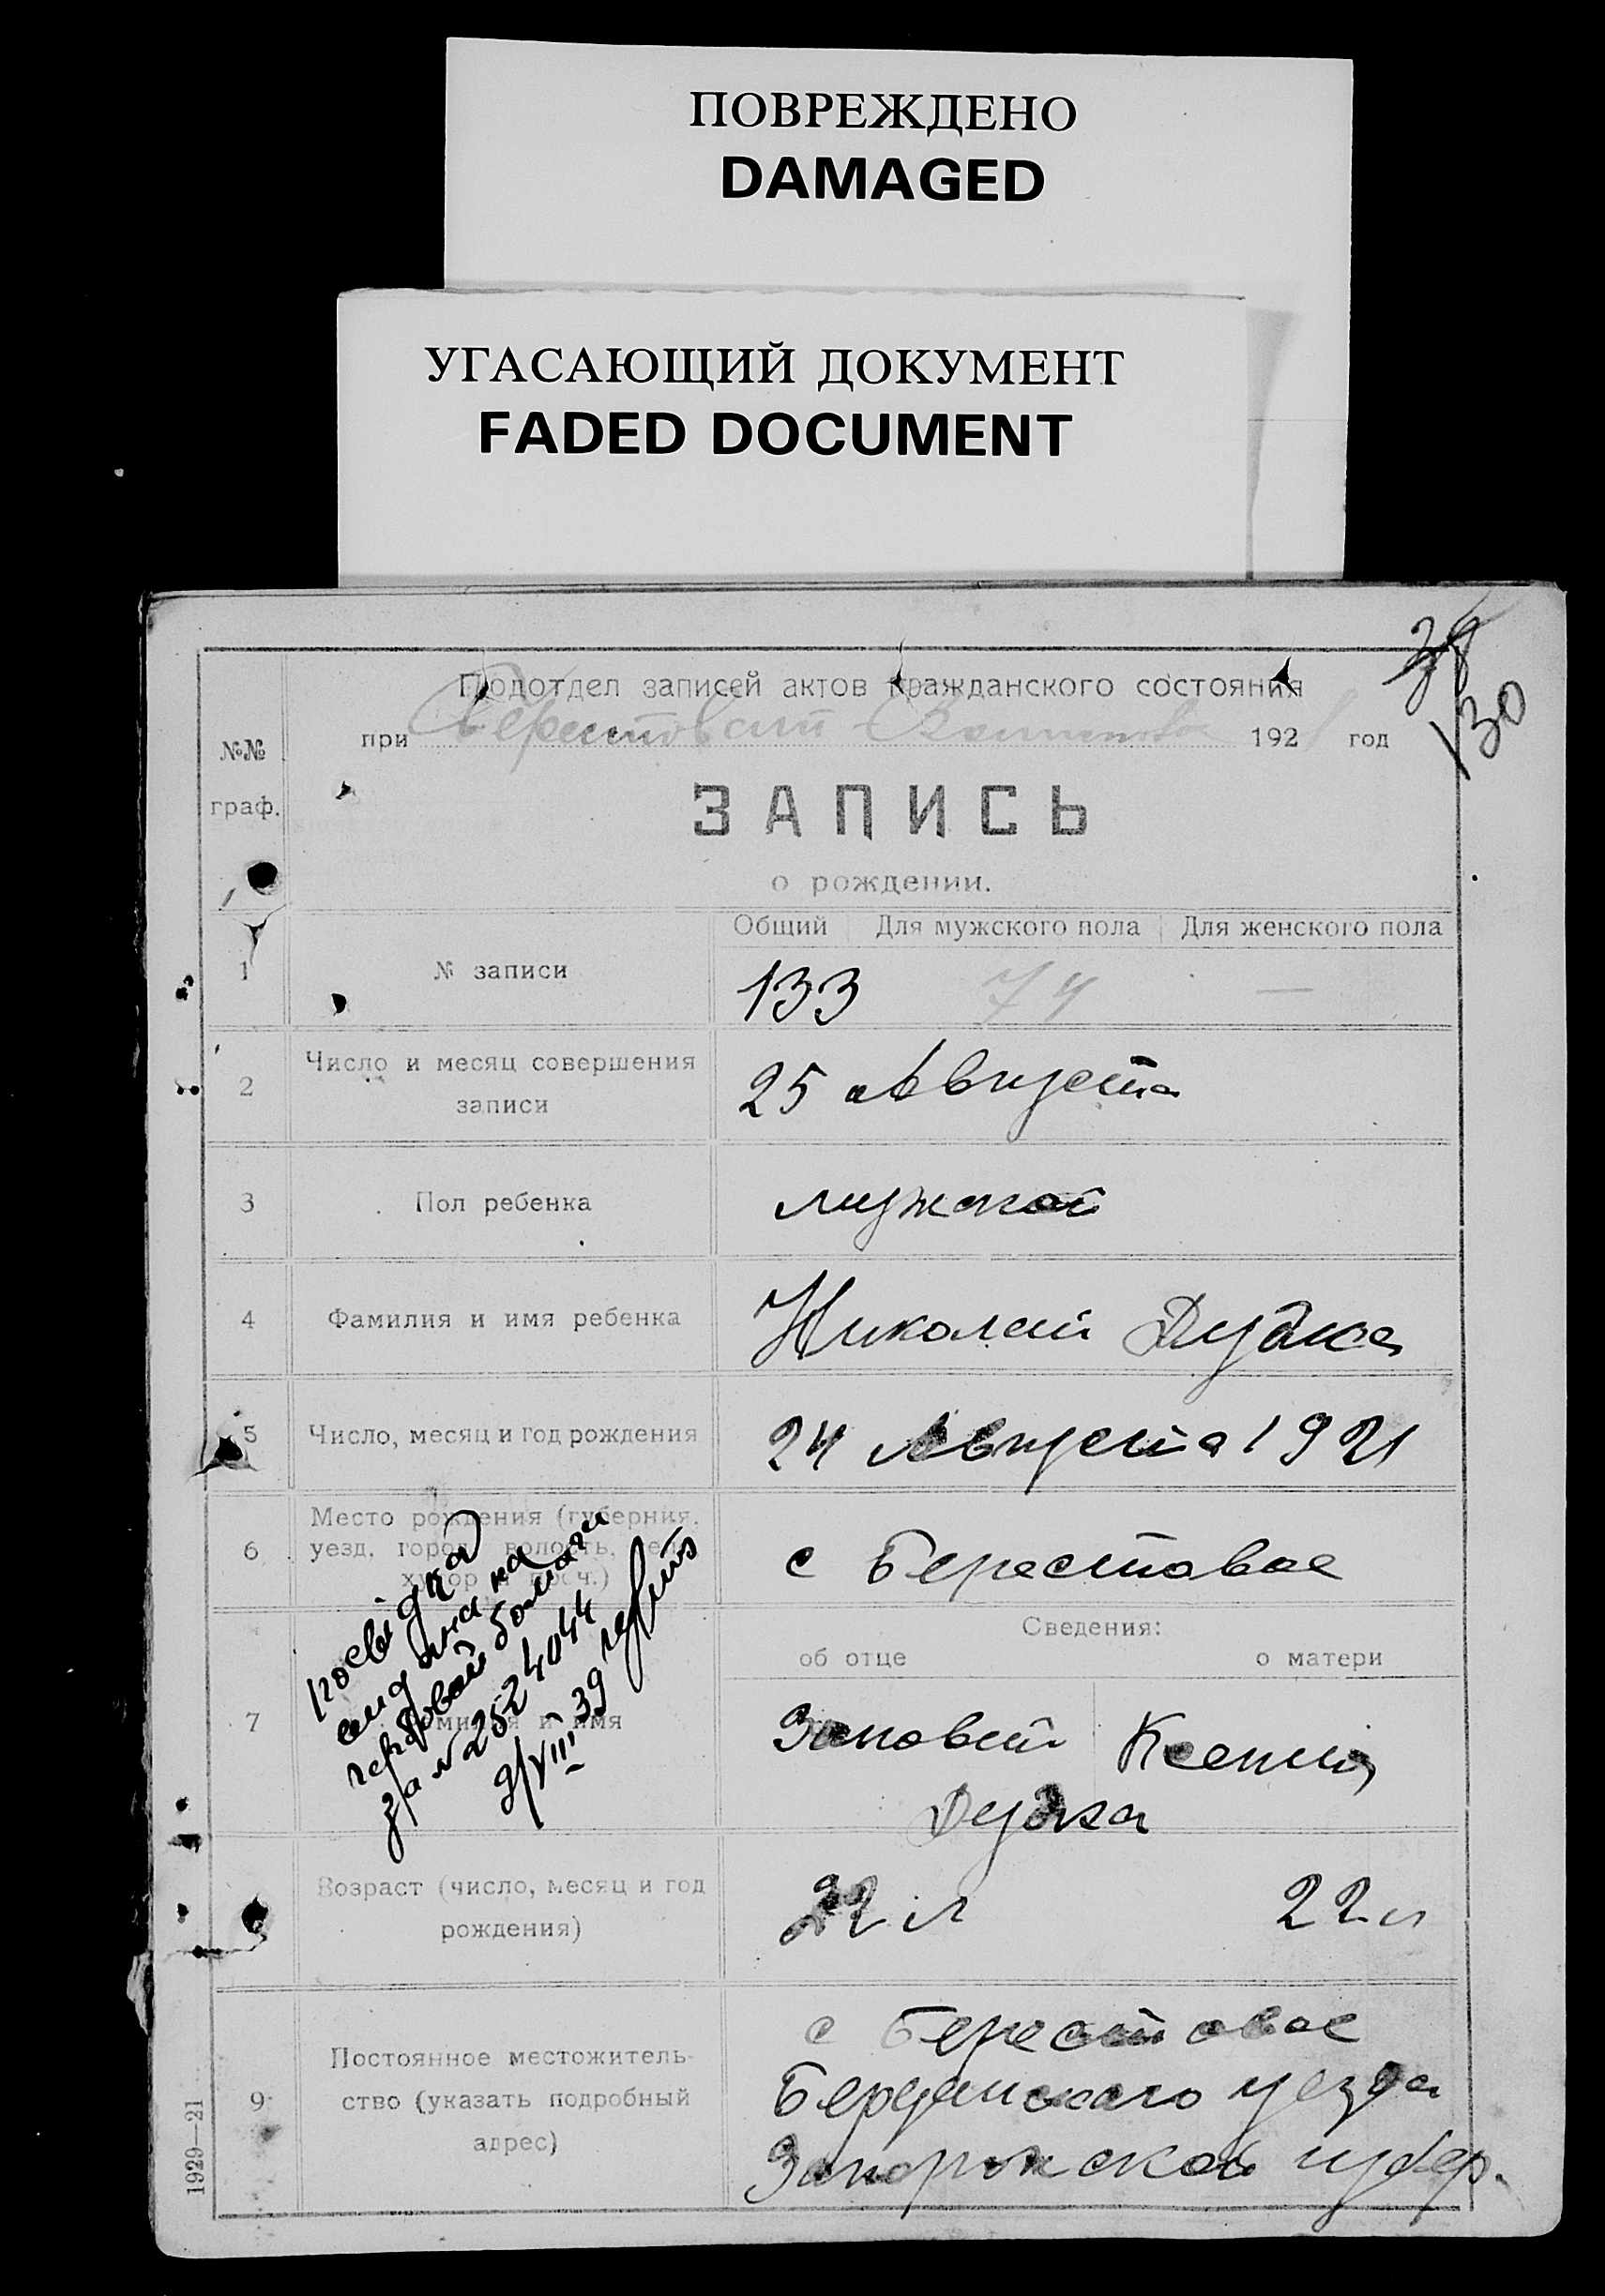 ПОВРЕЖДЕНО
DAMAGED
УГАСАЮЩИЙ ДОКУМЕНТ
FADED DOCUMENT
130
Подотдел записей актов гражданского состояния
при 1921 год
№№
граф.
ЗАПИСЬ
о рождении.
Общий Для мужского пола Для женского пола
1 № записи 133 74 —
2 Число и месяц совершения
записи
25 Августа
3 Пол ребенка мужской
4 Фамилия и имя ребенка Николай Дудка
5 Число, месяц и год рождения 24 Августа 1921
6 Место рождения (губерния,
уезд, город, волость,
хутор и проч.)
с Берестовое
Сведения:
об отце о матери
7 Фамилия и имя
Ксения
Дудка
Возраст (число, месяц и год
рождения)
22 л 22 л
9 Постоянное местожитель-
ство (указать подробный
адрес)
с Берестовое
Бердянского уезда
Запорожской губер.
посвідка
видана на
гербовой бомаги
за № 2524044
9/VIII 39
1929—21